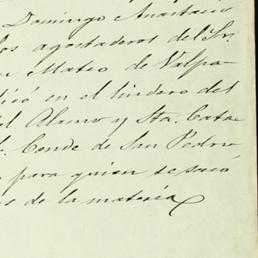 Domingo Anastacio
los agostaderos del Sr.
Mateo de Valpa-
dicó en el lindero del
el Alamo y Sta. Cata-
Conde de San Pedro
para quien se sacó
de la materia